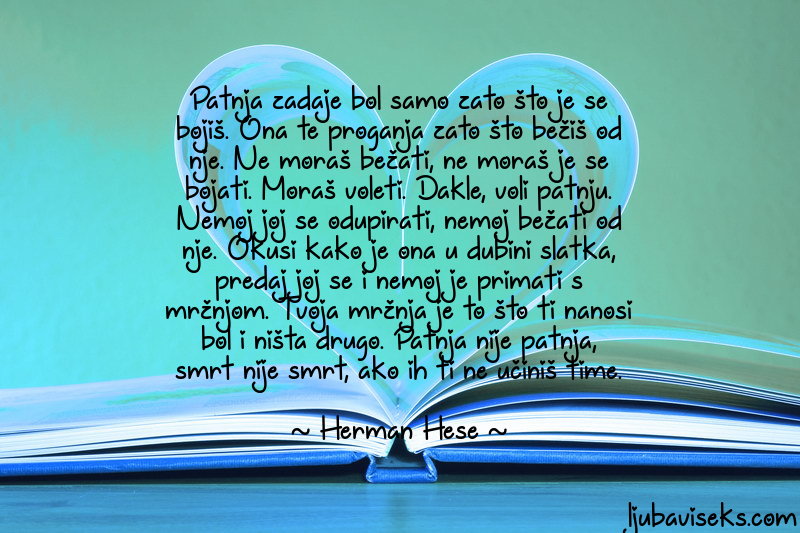 Patnja zadaje bol samo zato što je se
bojiš. Ona te proganja zato što bežiš od
nje. Ne moraš bežati, ne moraš je se
bojati. Moraš voleti. Dakle, voli patnju.
Nemoj joj se odupirati, nemoj bežati od
nje. Okusi kako je ona u dubini slatka,
predaj joj se i nemoj je primati s
mržnjom. Tvoja mržnja je to što ti nanosi
bol i ništa drugo. Patnja nije patnja,
smrt nije smrt, ako ih ti ne učiniš time.
~ Herman Hese ~
ljubaviseks.com